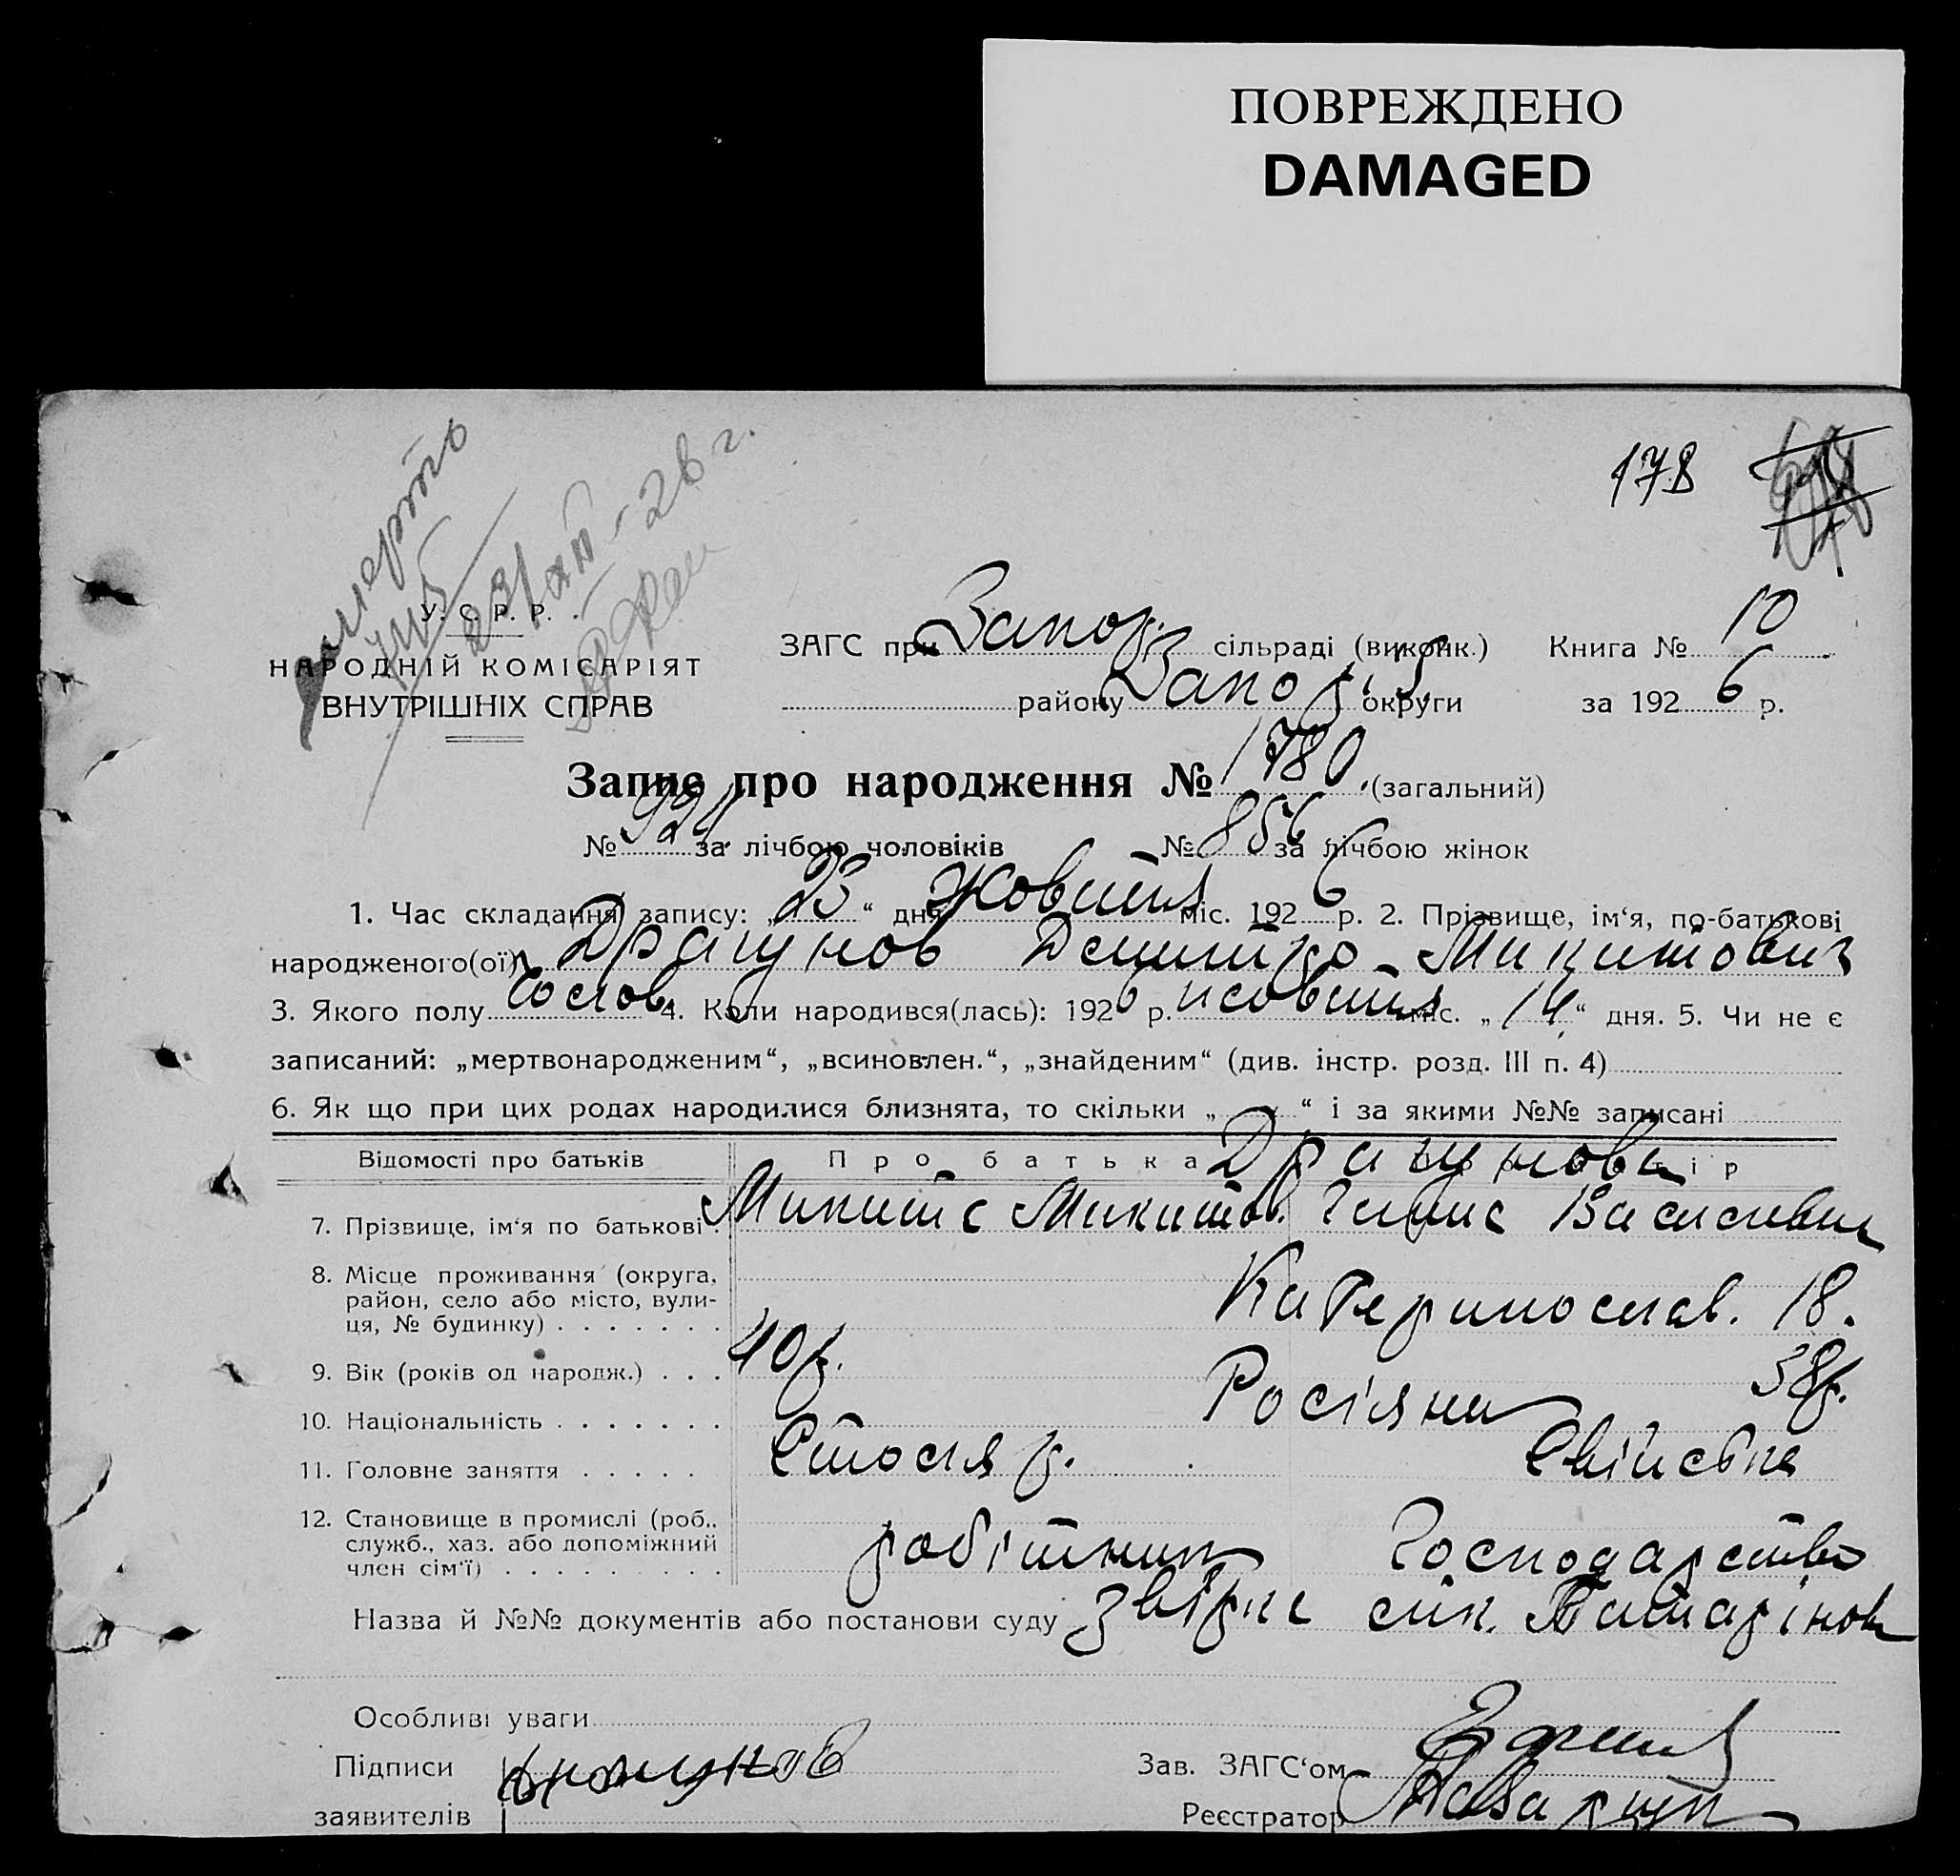 ПОВРЕЖДЕНО
DAMAGED
178
смерть
У. С. Р. Р.
НАРОДНІЙ КОМІСАРІЯТ
ВНУТРІШНІХ СПРАВ
ЗАГС при Запор. сільраді (виконк.) Книга № 10
району Запоріз округи за 1926 р.
Запис про народження № 1780 (загальний)
№ 924 за лічбою чоловіків № 856 за лічбою жінок
1. Час складання запису: „23“ дня жовтня міс. 1926 р. 2. Прізвище, ім‘я, по-батькові
народженого(ої) Драгунов Демитро Микитович
3. Якого полу чолов. 4. Коли народився(лась): 1926 р. жовтня міс. „14“ дня. 5. Чи не є
записаний: „мертвонародженим“, „всиновлен.“, „знайденим“ (див. інстр. розд. III п. 4)
6. Як що при цих родах народилися близнята, то скільки „ “ і за якими №№ записані
Відомості про батьків Про батька Драгунови
7. Прізвище, ім‘я по батькові Микита Микитов. Ганна Василевна
8. Місце проживання (округа,
район, село або місто, вули-
ця, № будинку) Катеринослав. 18.
9. Вік (років од народж.) 40р. 38р.
10. Національність Росіяни
11. Головне заняття Столяр. Свійське
12. Становище в промислі (роб.,
служб., хаз. або допоміжний
член сім‘ї) робітник Господарство
Назва й №№ документів або постанови суду
Особливі уваги
Підписи Драгунов Зав. ЗАГС‘ом
заявителів Реєстратор